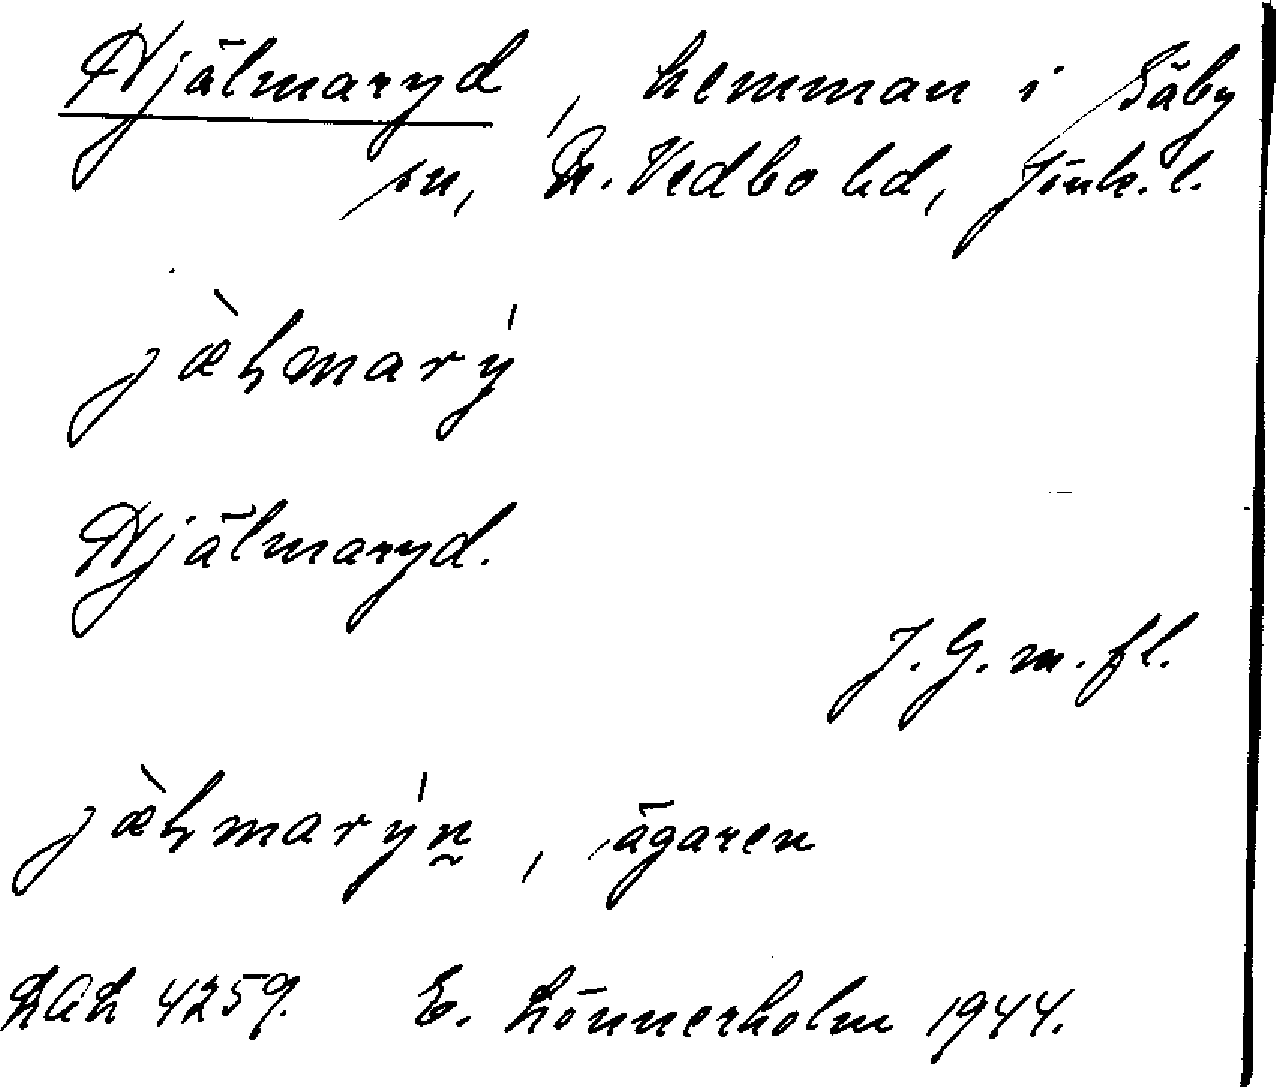 Hjälmaryd, hemman i Säby
sn, N. Vedbo hd, Jönk. l.
jæ̀lmarý
Hjälmaryd.
J. G. m. fl.
jæ̀lmarýn̰, ägaren
LAL 4259. E. Lönnerholm 1944.